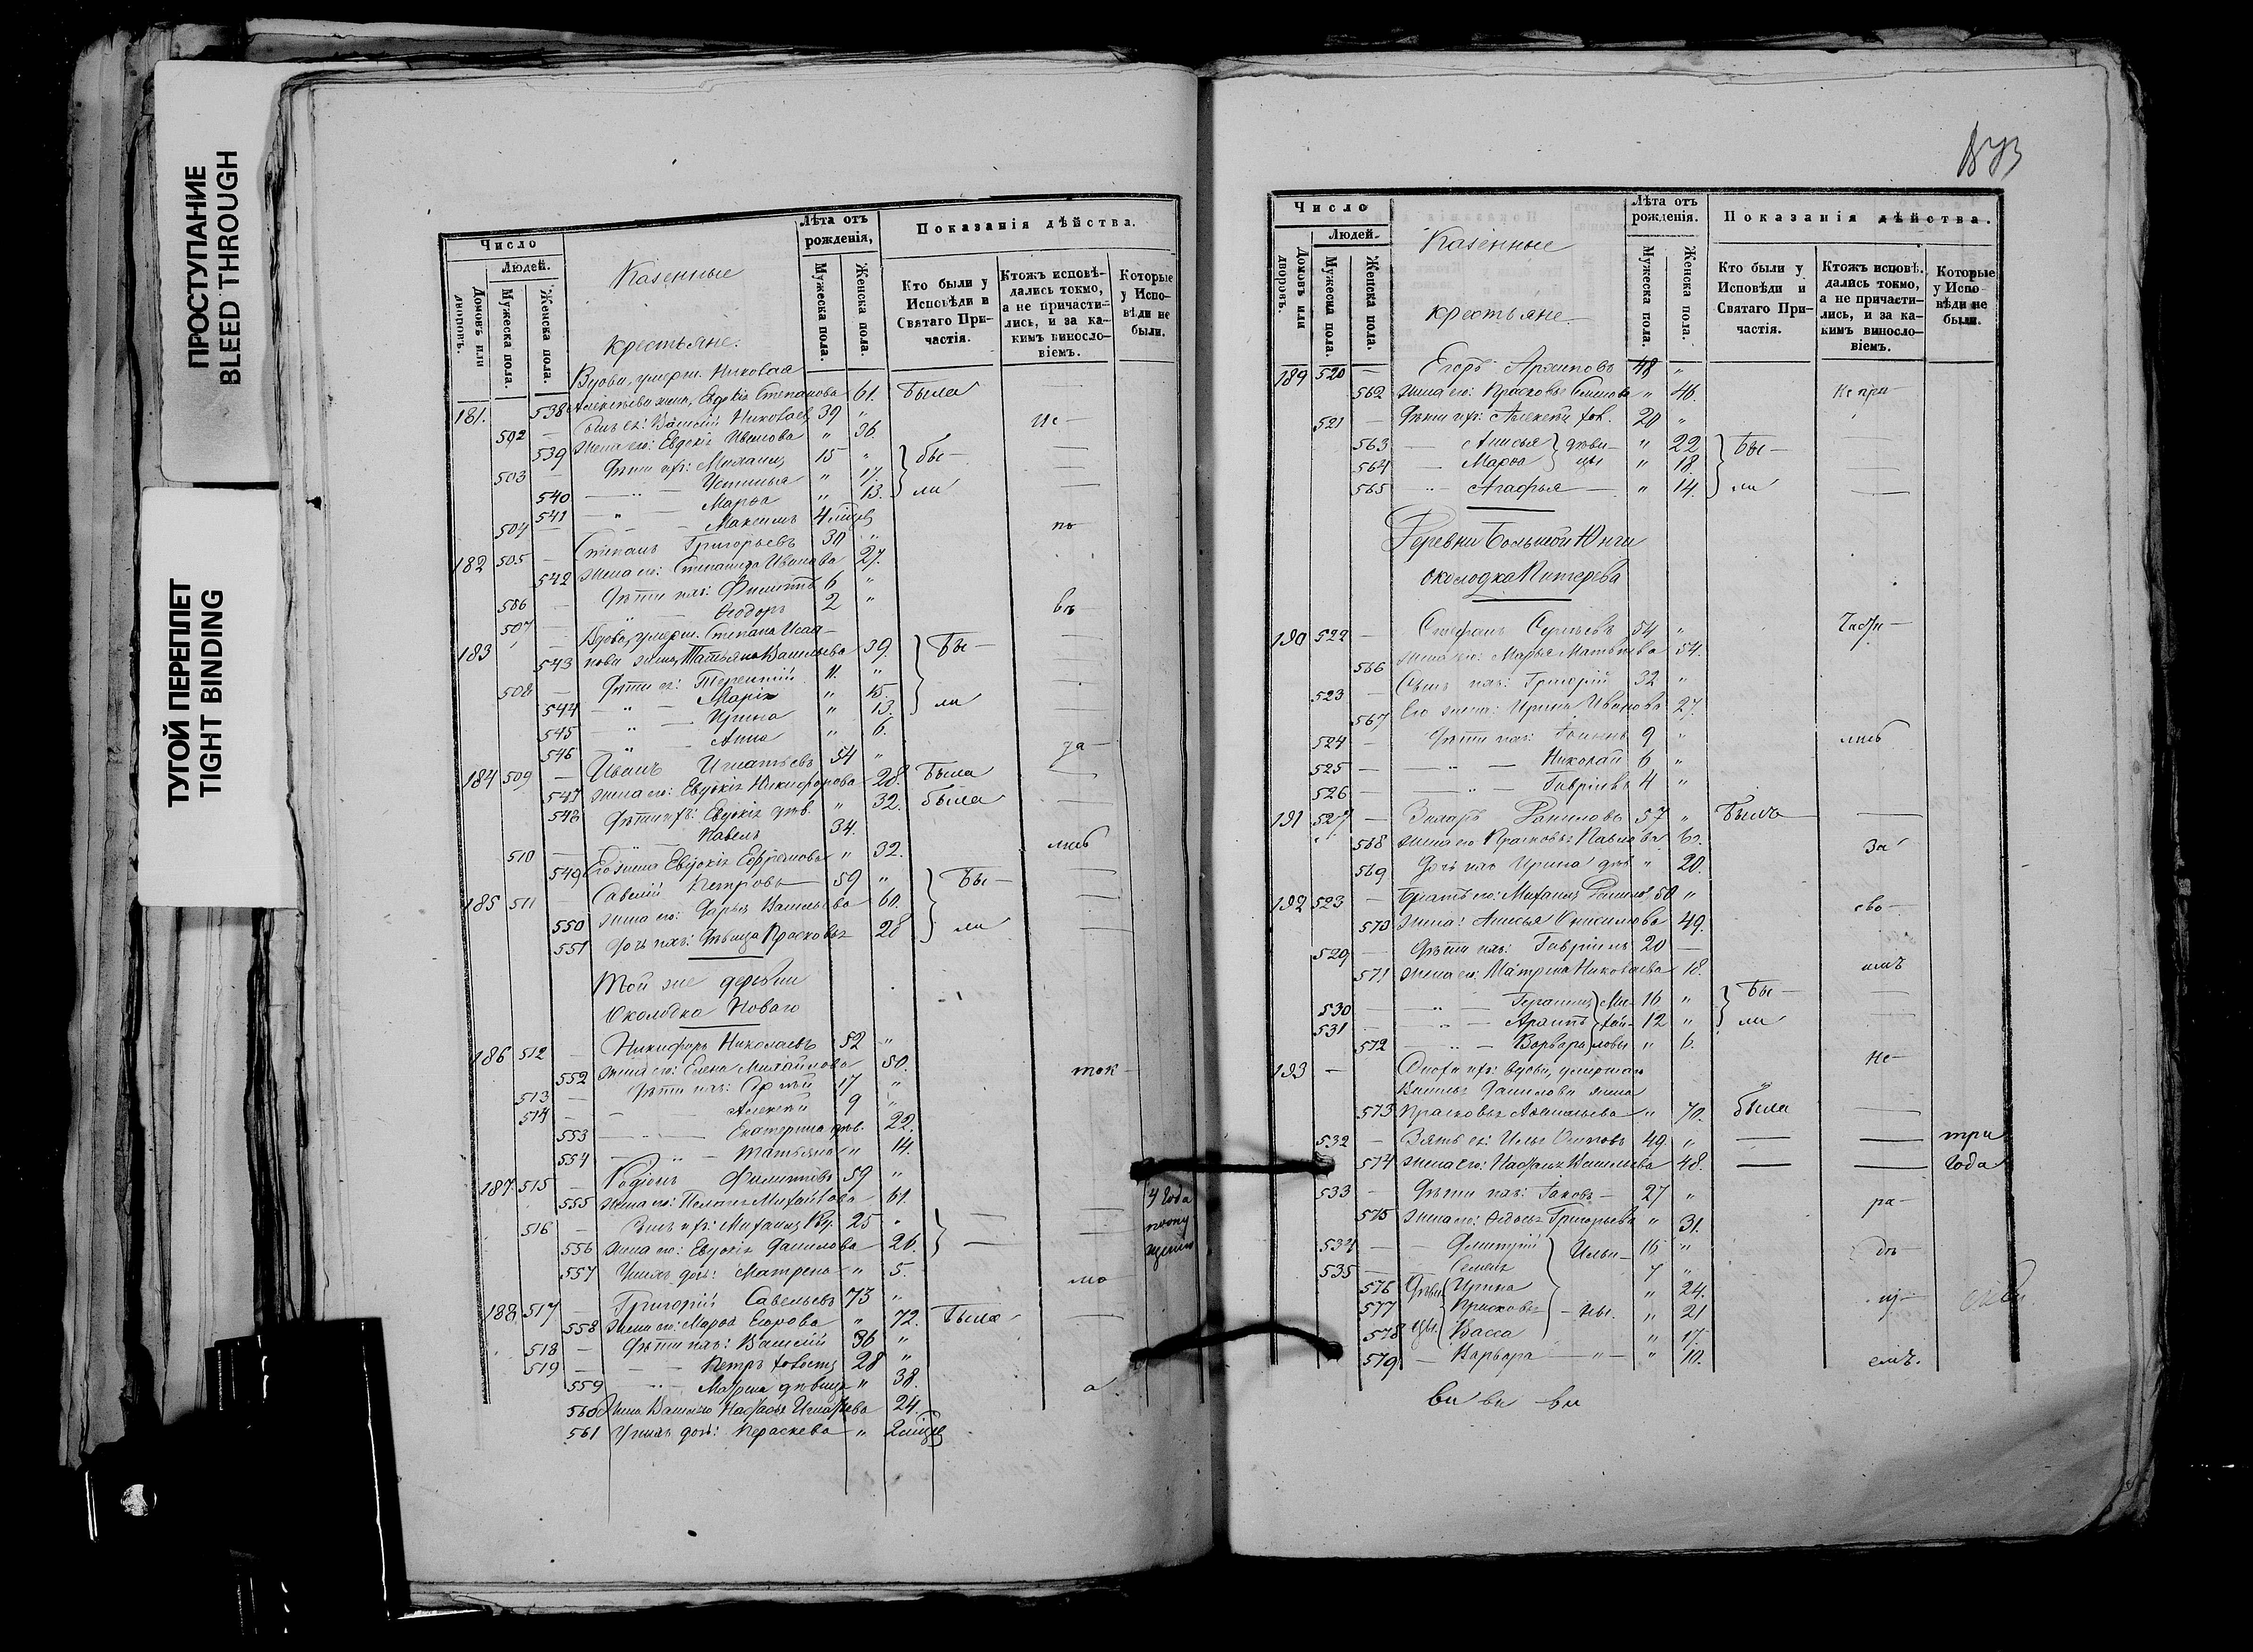 ПРОСТУПАНИЕ
BLEED THROUGH
ТУГОЙ ПЕРЕПЛЕТ
TIGHT BINDING
Число
Людей.
Домовъ или дворовъ.
Мужеска пола.
Женска пола.
Казенные
крестьяне.
Лѣта отъ рожденія,
Мужеска пола.
Женска пола.
Показанія дѣйства.
Кто были у Исповѣди и Святаго Причастія.
Ктожъ исповѣдались токмо, а не причастились, и за какимъ винословіемъ.
Которые у Исповѣди не были.
Вдова, умерш. Николая
181. 538 Алексѣева жена, Евдокія Степанова 61. Была
592 — Сынъ ея: Василій Николаев 39 " Ис—
539 Жена его: Евдокія Иванова " 36.
503 — Дѣти ихъ: Михаилъ 15 " бы—
540 — " — Устинья " 17.
541 — " — Марѳа " 13. ли
504 — — Максимъ 4 мѣсяц
182 505 — Степанъ Григорьевъ 30 " по—
542 Жена его: Степанида Иванова 27.
506 — Дѣти ихъ: Филиппъ 6 "
507 — " — Ѳеодоръ 2 " вѣ—
183 Вдова, умерш. Степана Исаа—
543 кова жена, Татьяна Васильева 39. Бы—
508 — Дѣти ея: Терентій 11. "
544 — " — Марія " 15. ли
545 — " — Ирина " 13.
546 — " — Анна " 6.
184 509 — Иванъ Игнатьевъ 54 " да—
547 Жена его: Евдокія Никифорова 28. Была
548 Дѣти ихъ: Евдокія дѣв. " 32. была
510 — " — Павелъ 34.
549 Его жена Евдокія Ефремова " 32. лись
185 511 — Савелій Петровъ 59 " Бы—
550 Жена его: Дарья Васильева 60.
551 Дочь ихъ: Дѣвица Прасковья 28 ли
Той же деревни
Околодка Новаго
186 512 — Никифоръ Николаевъ 52 "
552 Жена его: Елена Михайлова 50. ток—
513 — Дѣти ихъ: 17 "
514 — — Алексѣй 9 "
553 — " — Екатерина дѣв. 22.
554 — " — Татьяна " 14.
187 515 — Родіонъ Филипповъ 59 "
555 Жена его: Михайлова 61. 4 года
516 — Сынъ ихъ: Михаилъ 25 "
556 Жена его: Евдокія Данилова 26.
557 У нихъ дочь: Матрена " 5. мо
188 517 — Григорій Савельевъ 73 "
558 Жена его: Марѳа Егорова " 72. Была
518 — Дѣти ихъ: Василій 36 "
519 — — Петръ холостъ 28 "
559 — " — Матрена дѣвица " 38. а
560 Жена Василія Настасья Игнатьева 24.
561 У нихъ дочь: Параскева " 2 мѣсяц
Число
Людей.
Домовъ или дворовъ.
Мужеска пола.
Женска пола.
Казенные
крестьяне.
Лѣта отъ рожденія.
Мужеска пола.
Женска пола.
Показанія дѣйства.
Кто были у Исповѣди и Святаго Причастія.
Ктожъ исповѣдались токмо, а не причастились, и за какимъ винословіемъ.
Которые у Исповѣди не были.
189 520 — Егоръ Архиповъ 48 "
562 Жена его: Прасковья Семенова " 46. не при—
521 — Дѣти ихъ: Алексѣй хол. 20 "
563 — Анисья дѣви— " 22 Бы—
564 — Марѳа цы " 18.
565 " — Агафья — " 14. ли
Деревни Большой Юнги
околодка Питерева
190 522 — Стефанъ Сергѣевъ 54 " части—
566 Жена его: Марья Матвѣева 54.
523 — Сынъ ихъ: Григорій 32 "
567 Его жена: Ирина Иванова 27.
524 — Дѣти ихъ: 9 " лись
525 — " — Николай 6 "
526 — " — Гавріилъ 4 "
191 527 — Захаръ Даниловъ 57 " Была
568 Жена его Прасковья Павлова 60. За
569 Дочь ихъ Ирина дѣв. " 20.
192 523 — Братъ его: Михаилъ Данилов 50 " сво—
570 Жена: Анисья Онисимова 49.
529 — Дѣти ихъ: Гавріилъ 20 —
571 Жена его: Матрена Николаева 18. имъ
530 — " — Герасимъ Ми— 16 " Бы—
531 — " — Архипъ хай— 12 " ли
572 — " — Варвара ловы " 6.
193 — Сноха ихъ: вдова, умершаго не—
Василья Данилова жена
573 Прасковья Аѳанасьева " 70. была
532 — Зять ея: Илья Осиповъ 49 " — — три
574 Жена его: Настасья Васильева 48. — — года
533 — Дѣти ихъ: Іаковъ — 27 " ра—
575 Жена его: Ѳедосья Григорьева " 31.
534 — — Димитрій Ильи— 16 " дѣ—
535 — Семенъ 7 "
576 Дѣви— Ирина " 24.
577 Прасковья — ны. " 21
578 цы. Васса " 17.
579 — Варвара — " — " 10. емъ.